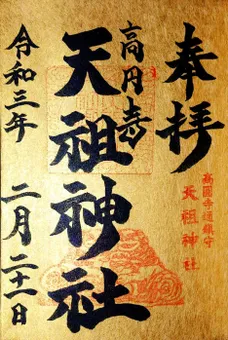 奉拝
高圓寺道鎮守
天祖神社
高円寺
天祖神社
令和三年
二月二十一日